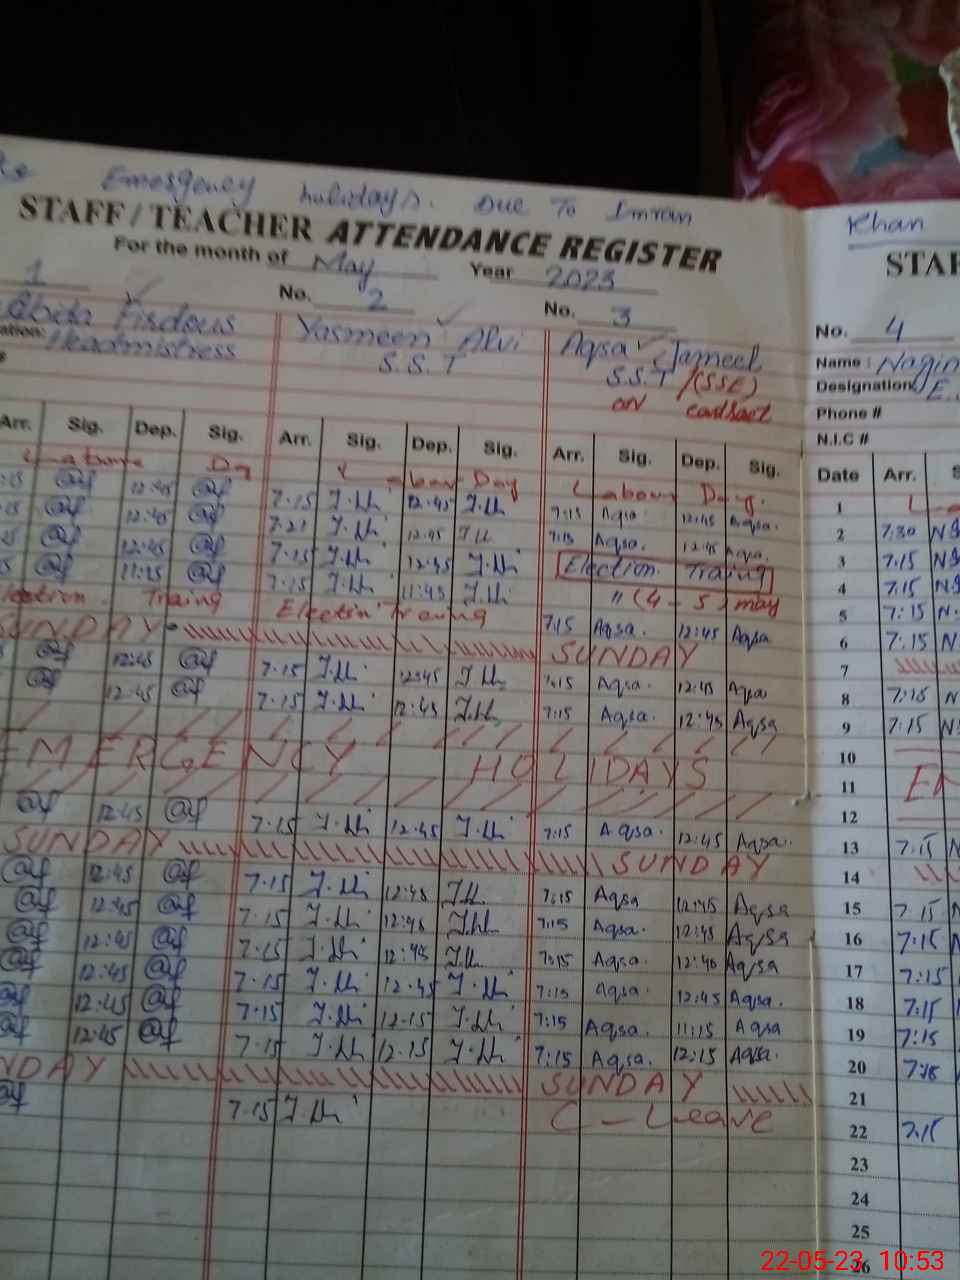 Emergency holidays. Due To Imran Khan
STAFF / TEACHER ATTENDANCE REGISTER STAF
For the month of May Year 2023
1 No. 2 No. 3 No. 4
Abida Firdous Yasmeen Alvi Aqsa Jameel Name : Nagin
Headmistress S.S.T S.S.T /(SSE) Designation E.
on contract Phone #
N.I.C #
Arr. Sig. Dep. Sig. Arr. Sig. Dep. Sig. Arr. Sig. Dep. Sig. Date Arr. S
Labour Day Labour Day Labour Day. 1
:15 12:45 7.15 12.45 7:15 Aqsa. 12:45 Aqsa. 2 7:30
12:45 7.21 12.45 7:15 Aqsa. 12:45 Aqsa. 3 7.15
12:45 7.15 12.45 Election Traing 4 7.15
7.15 11.45 " (4 - 5) may 5 7:15
Election Traing Electin Traning 7:15 Aqsa. 12:45 Aqsa 6 7.15
SUNDAY SUNDAY 7
12:45 7.15 12:45 7:15 Aqsa. 12:45 Aqsa 8 7:15
12:45 7.15 12:45 7:15 Aqsa. 12:45 Aqsa 9 7:15
10
EMERGENCY HOLIDAYS 11 EM
12
12:45 7.15 12.45 7:15 Aqsa. 12:45 Aqsa. 13 7.15
SUNDAY SUNDAY 14
12:45 7.15 12:45 7:15 Aqsa 12:45 Aqsa 15 7.15
12:45 7.15 12:45 7:15 Aqsa. 12:45 Aqsa 16 7:15
12:45 7.15 12:45 7:15 Aqsa. 12:40 Aqsa 17 7:15
12:45 7.15 12.45 7:15 Aqsa. 12:45 Aqsa. 18 7:15
12:45 7.15 12.15 7:15 Aqsa. 11:15 Aqsa 19 7:15
12:45 7.15 12.15 7:15 Aqsa. 12:15 Aqsa. 20
NDAY SUNDAY 21
7.15 C-Leave 22 7.15
23
24
25
26
22-05-23 10:53